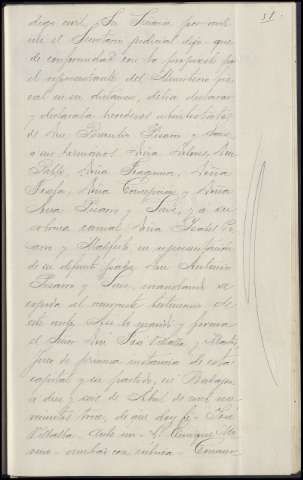 51
digo civil, Su Señoría por ante
mi el Secretario judicial dijo: que
de conformidad con lo propuesto por
el representante del Ministerio fis-
cal en su dictamen, debía declarar
y declaraba herederos abintestato
de Don Pisam y
a sus hermanos Doña Dolores, Don
Pablo, Doña Joaquina, Doña
Josefa, Doña Concepción y Doña
Ana Pisam y , y a su
sobrina carnal Doña Isabel Pi-
sam y en representación
de su difunto padre Don Antonio
Pisam y , mandando se
expida el oportuno testimonio de
este auto. Así lo mandó y firma
el Señor Don José Villalba y
Juez de primera instancia de esta
capital y su partido, en Badajoz
a diez y seis de Abril de mil no-
vecientos trece, de que doy fe = José
Villalba = Ante mi = Enrique
= rubricas = Concuer-